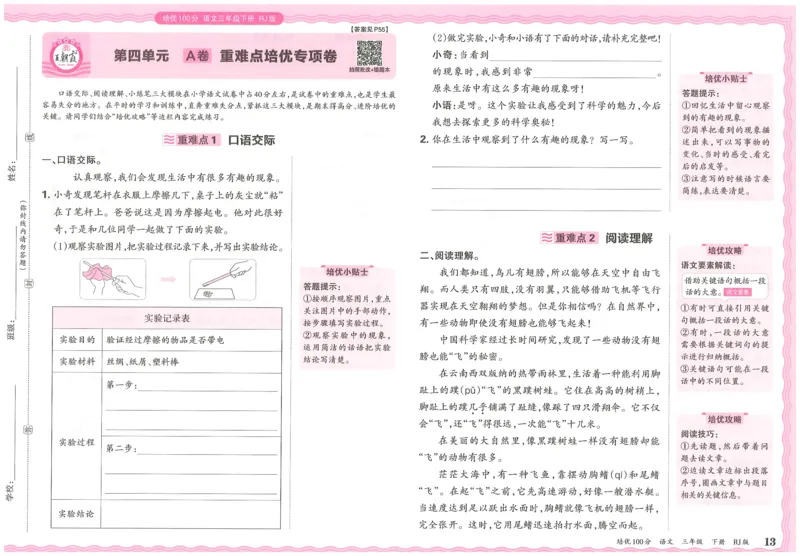 培优100分 语文三年级下册 RJ版
【答案见P55】
王朝霞
第四单元 A卷 重难点培优专项卷
拍照批改+错题本
口语交际、阅读理解、小练笔三大模块在小学语文试卷中占40分左右,是试卷中的重难点,也是学生最
容易失分的地方。在平时的学习和训练中,直奔重难失分点,紧抓这三大模块,是期末得高分、进阶培优的
关键。请同学们结合“培优攻略”等边栏内容完成练习。
重难点1 口语交际
一、口语交际。
认真观察,我们会发现生活中有很多有趣的现象。
1. 小奇发现笔杆在衣服上摩擦几下,桌子上的灰尘就“粘”
在了笔杆上。爸爸说这是因为摩擦起电。他对此很好
奇,于是和几位同学一起做了下面的实验。
(1)观察实验图片,把实验过程记录下来,并写出实验结论。
实验记录表
实验目的 验证经过摩擦的物品是否带电
实验材料 丝绸、纸屑、塑料棒
实验过程
第一步:
第二步:
实验结论
培优小贴士
答题提示:
①按顺序观察图片,重点
关注图片中的手部动作,
按步骤填写实验过程。
②观察实验中的现象,
运用简洁的话语把实验
结论写清楚。
姓名:
班级:
学校:
密
封
线
(弥封线内请勿答题)
(2)做完实验,小奇和小语有了下面的对话,请补充完整吧!
小奇:当看到
的现象时,我感到非常。
原来生活中有这么多有趣的现象呀!
小语:是呀。这个实验让我感受到了科学的魅力,今后
我想去探索更多的科学奥秘!
2. 你在生活中观察到了什么有趣的现象?写一写。
培优小贴士
答题提示:
①回忆生活中留心观察
到的有趣的现象。
②简单把看到的现象描
述出来,可以写事物的
变化、当时的感受、看完
后的启发等。
③注意写的时候语言要
简练,表达要清楚。
重难点2 阅读理解
二、阅读理解。
我们都知道,鸟儿有翅膀,所以能够在天空中自由飞
翔。而人类只有四肢,没有羽翼,只能够借助飞机等飞行
器实现在天空翱翔的梦想。但是你相信吗?在自然界中,
有一些动物即使没有翅膀也能够飞起来!
中国科学家经过长时间研究,发现了一些动物没有翅
膀也能“飞”的秘密。
在云南西双版纳的热带雨林里,生活着一种能利用脚
趾上的蹼(pǔ)“飞”的黑蹼树蛙。它住在高高的树梢上,
脚趾上的蹼几乎铺满了趾缝,像踩了四只滑翔伞。它不仅
会“飞”,还“飞”得很远,一次能“飞”十几米。
在美丽的大自然里,像黑蹼树蛙一样没有翅膀却能
“飞”的动物有很多。
茫茫大海中,有一种飞鱼,靠摆动胸鳍(qí)和尾鳍
“飞”。在起“飞”之前,它先高速游动,好像一艘潜水艇。
当速度达到足以跃出水面时,胸鳍就像飞机的翅膀一样,
完全张开。这时,它用尾鳍迅速拍打水面,腾空而起。
培优攻略
语文要素解读:
借助关键语句概括一段
话的大意。语文要素
①有时可直接引用关键
句概括一段话的大意。
②有时,一段话的大意
需要根据关键词句的提
示进行归纳概括。
③关键语句可能在一段
话中的不同位置。
培优攻略
阅读技巧:
①先读题,然后带着问
题去读文章。
②边读文章边标出段落
序号,圈画文章中与题目
相关的关键信息。
培优100分 语文 三年级 下册 RJ版 13